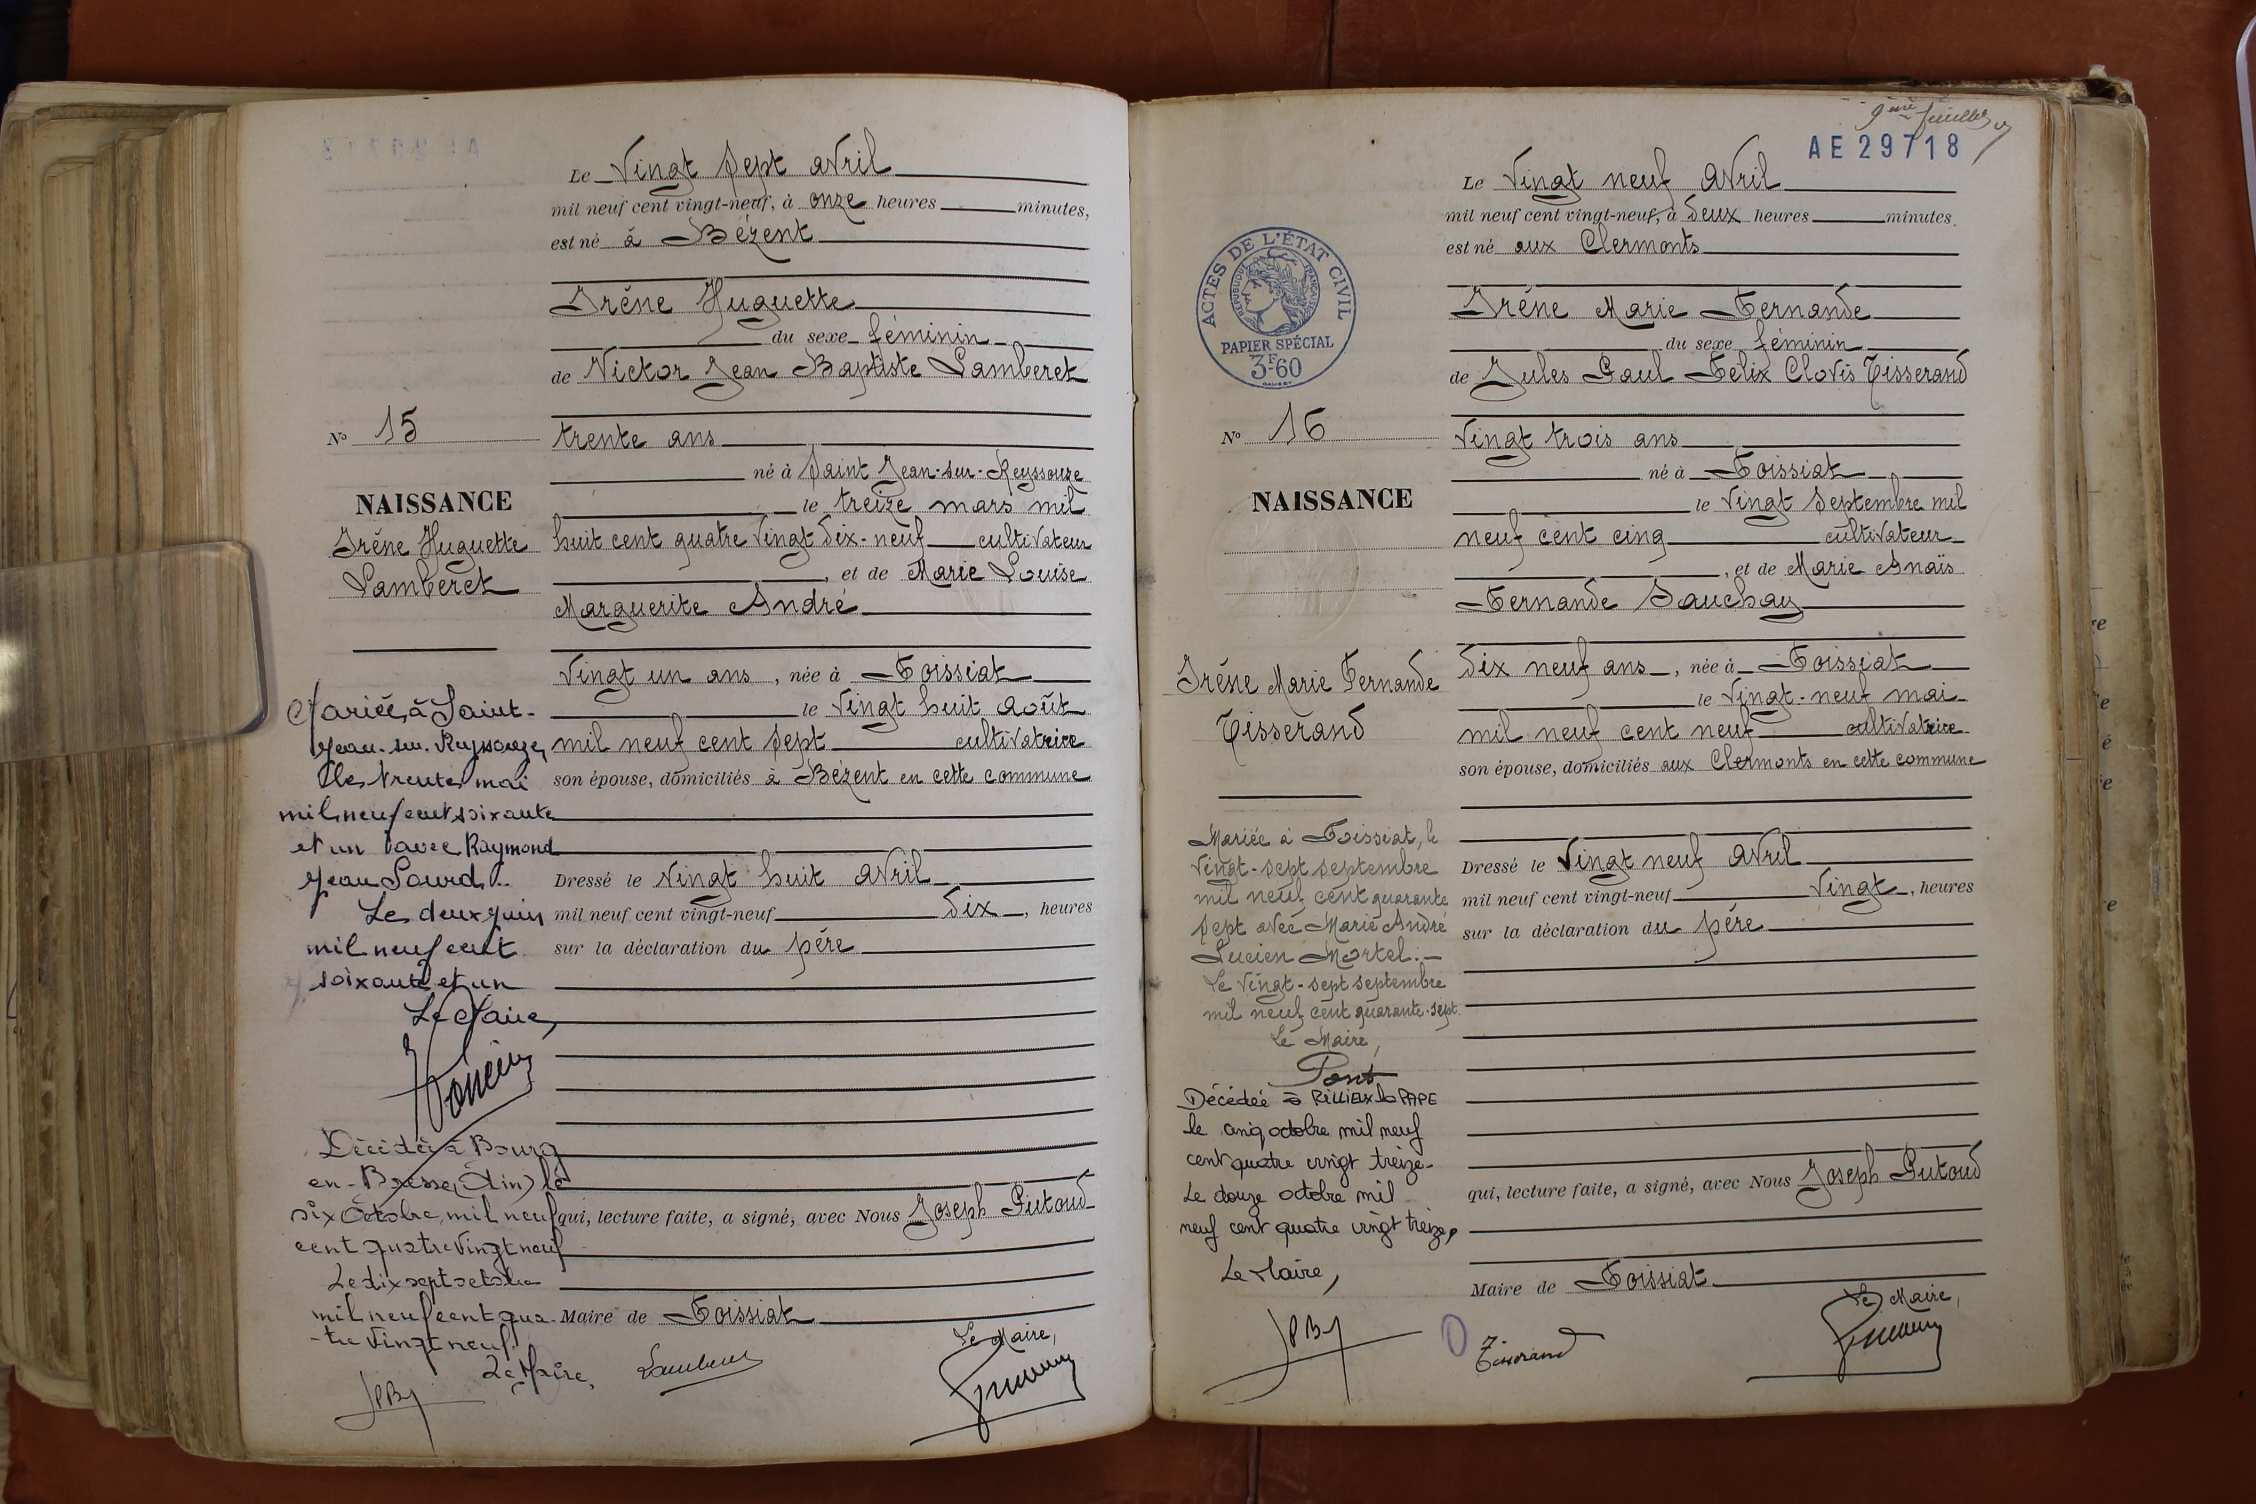 Le Vingt sept avril
mil neuf cent vingt-neuf, à onze heures minutes,
est né à Bézent
Irène Huguette
du sexe féminin
de Victor Jean Baptiste Lamberet
No 15
trente ans
né à Saint Jean-sur-Reyssouze
le treize mars mil
NAISSANCE
Irène Huguette
Lamberet
huit cent quatre vingt dix-neuf cultivateur
, et de Marie Louise
Marguerite André
Vingt un ans, née à Foissiat
le Vingt huit août
mil neuf cent sept cultivatrice
son épouse, domiciliés à Bézent en cette commune
Dressé le Vingt huit avril
mil neuf cent vingt-neuf dix, heures
sur la déclaration du père
qui, lecture faite, a signé, avec Nous Joseph Putoud
Maire de Foissiat
Le Maire,
Mariée à Saint-
Jean-sur-Reyssouze,
le trente mai
mil neuf cent soixante
et un avec Raymond
Jean Sourd.
Le deux juin
mil neuf cent
soixante et un
Le Maire,
Décédée à Bourg
en-Bresse (Ain) le
six Octobre mil neuf
cent quatre vingt neuf
Le dix sept octobre
mil neuf cent qua-
-tre vingt neuf
Le Maire,
9ème feuillet
AE 29718
Le Vingt neuf avril
mil neuf cent vingt-neuf, à deux heures minutes
est né aux Clermonts
ACTES DE L'ÉTAT CIVIL
REPUBLIQUE FRANÇAISE
PAPIER SPÉCIAL
3F60
Irène Marie Fernande
du sexe féminin
de Jules Paul Félix Clovis Tisserand
No 16
Vingt trois ans
né à Foissiat
le Vingt septembre mil
NAISSANCE
neuf cent cinq cultivateur
, et de Marie Anaïs
Fernande Sauchay
Irène Marie Fernande
Tisserand
dix neuf ans, née à Foissiat
le Vingt-neuf mai
mil neuf cent neuf cultivatrice
son épouse, domiciliés aux Clermonts en cette commune
Dressé le Vingt neuf avril
mil neuf cent vingt-neuf Vingt, heures
sur la déclaration du père
qui, lecture faite, a signé, avec Nous Joseph Putoud
Maire de Foissiat
Le Maire,
Tisserand
Mariée à Foissiat, le
Vingt-sept septembre
mil neuf cent quarante
sept avec Marie André
Lucien Mortel.-
Le Vingt-sept septembre
mil neuf cent quarante-sept.
Le Maire,
Pont
Décédée à RILLIEUX la PAPE
le cinq octobre mil neuf
cent quatre vingt treize-
Le douze octobre mil
neuf cent quatre vingt treize,
Le Maire,